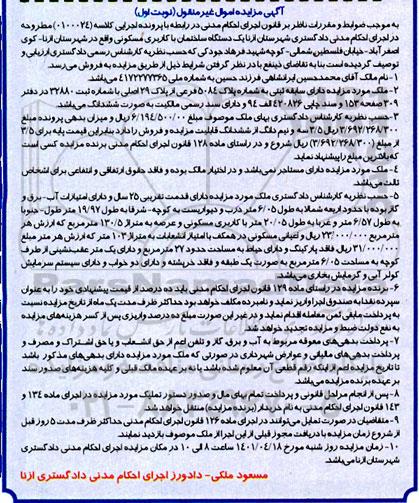 آگهی مزایده اموال غیر منقول (نوبت اول)
به موجب ضوابط و مقررات ناظر بر قانون اجرای احکام مدنی در رابطه با پرونده اجرایی کلاسه (۰۱۰۰۰۲۴) مطروحه
در اجرای احکام مدنی دادگستری شهرستان ازنا یک دستگاه ساختمان با کاربری مسکونی واقع در شهرستان ازنا- کوی
اصغر آباد- خیابان فلسطین شمالی- کوچه شهید فرهاد جودکی که حسب نظریه کارشناس رسمی دادگستری ارزیابی و
توصیف گردیده است بنا به تقاضای ذینفع با در نظر گرفتن شرایط ذیل از طریق مزایده به فروش می‌رسد.
۱- نام مالک آقای محمدحسین ایرانشاهی فرزند حسین به شماره ملی ۴۱۷۲۲۷۷۳۶۵ می‌باشد.
۲- ملک مورد مزایده دارای سابقه ثبتی به شماره پلاک ۵۰۸۴ فرعی از پلاک ۲۹ اصلی با شماره ثبت ۳۲۸۸۰ در دفتر
۳۰۹ صفحه ۱۵۳ و سند چاپی ۴۲۰۸۲۶ الف ۹۴ و دارای سند رسمی مالکیت به صورت ششدانگ می‌باشد.
۳- حسب نظریه کارشناس دادگستری بهای ملک موصوف مبلغ ۶/۱۹۴/۵۰۰/۰۰۰ ریال و میزان بدهی پرونده مبلغ
۳/۶۹۲/۲۶۸/۳۰۰ ریال ۳/۵ سه و نیم دانگ از ششدانگ قابلیت مزایده و فروش را دارد بنابراین قیمت پایه برای ۳/۵
از مبلغ (۳/۶۹۲/۲۶۸/۳۰۰) ریال شروع و در راستای ماده ۱۲۸ قانون اجرای احکام مدنی برنده مزایده کسی است
که بالاترین مبلغ را پیشنهاد نماید.
۴- ملک مورد مزایده دارای مستاجر نمی‌باشد و در اختیار مالک بوده و فاقد حقوق ارتفاقی و انتفاعی برای اشخاص
ثالث می‌باشد.
۵- حسب نظریه کارشناس دادگستری ملک مورد مزایده دارای قدمت تقریبی ۲۵ سال و دارای امتیازات آب- برق و
گاز بوده با حدود اربعه شمالا به طول ۶/۰۵ متر درب و دیواریست به کوچه- شرقا به طول ۱۹/۹۷ متر طول- جنوبا
به طول ۶/۵۷ متر و غربا به طول ۲۰/۰۵ متر با کاربری مسکونی و عرصه به متراژ ۱۳۰/۵ مترمربع که ارزش هر
مترمربع ۲۳/۰۰۰/۰۰۰ ریال و اعیانی مسکونی در همکف با امتیاز انشعابات به متراژ ۱۰۳ متر که ارزش هر متر مبلغ
۳۱/۰۰۰/۰۰۰ ریال فاقد پارکینگ و دارای حیاط به مساحت حدود ۲۷ مترمربع و دارای یک متر عقب‌نشینی از طرف
کوچه به مساحت ۶/۰۵ مترمربع به صورت یک طبقه و فاقد خرپشته و دارای دو خواب و دارای سیستم سرمایش
کولر آبی و گرمایش بخاری می‌باشد.
۶- برنده مزایده در راستای ماده ۱۲۹ قانون اجرای احکام مدنی باید ده درصد از قیمت پیشنهادی خود را به عنوان
سپرده نقدا به صندوق اجرا واریز نماید و نامبرده مکلف خواهد بود حداکثر ظرف مدت یک ماه از تاریخ مزایده نسبت
به پرداخت مابقی ثمن معامله اقدام نماید و در غیر این صورت مبلغ ده درصد واریزی پس از کسر هزینه‌های مزایده
به نفع دولت ضبط و مزایده تجدید خواهد شد.
۷- پرداخت بدهی‌های معوقه مربوط به آب و برق، گاز و تلفن اعم از حق انشعاب و یا حق اشتراک و مصرف و
پرداخت بدهی‌های مالیاتی و عوارض شهرداری در صورتی که ملک مورد مزایده دارای بدهی‌های مذکور باشد
تا تاریخ مزایده اعم از اینکه رقم قطعی آن معلوم شده باشد یا نه بر عهده مالک قبلی و کلیه هزینه‌های صدور سند
بر عهده برنده مزایده می‌باشد.
۸- پس از انجام مراحل قانونی و پرداخت تمام بهای مال و صدور دستور تملیک مورد مزایده در اجرای ماده ۱۳۴ و
۱۴۳ قانون اجرای احکام مدنی به نام خریدار (برنده مزایده) منتقل خواهد شد.
۹- متقاضیان در صورت تمایل می‌توانند در اجرای ماده ۱۲۶ قانون اجرای احکام مدنی حداکثر ظرف مدت ۵ روز قبل
از شروع زمان مزایده با دریافت مجوز قبلی از این اجرا از ملک موصوف بازدید نمایند.
۱۰- زمان مزایده روز شنبه مورخ ۱۴۰۱/۰۴/۱۸ ساعت ۸ الی ۱۰ در مکان مزایده اجرای احکام مدنی دادگستری
شهرستان ازنا می‌باشد.
مسعود ملکی- دادورز اجرای احکام مدنی دادگستری ازنا